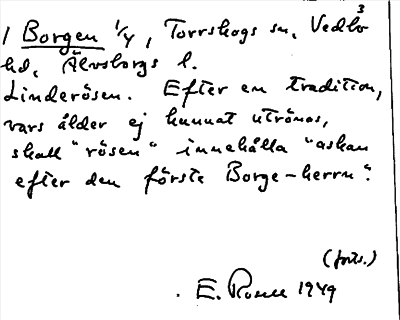 1 Borgen 1/4, Torrskogs sn, Vedbo
3
hd, Älvsborgs l.
Linderösen. Efter en tradition,
vars ålder ej kunnat utrönas,
skall "rösen" innehålla "askan
efter den förste Borge-herrn".
(forts.)
E. 1949